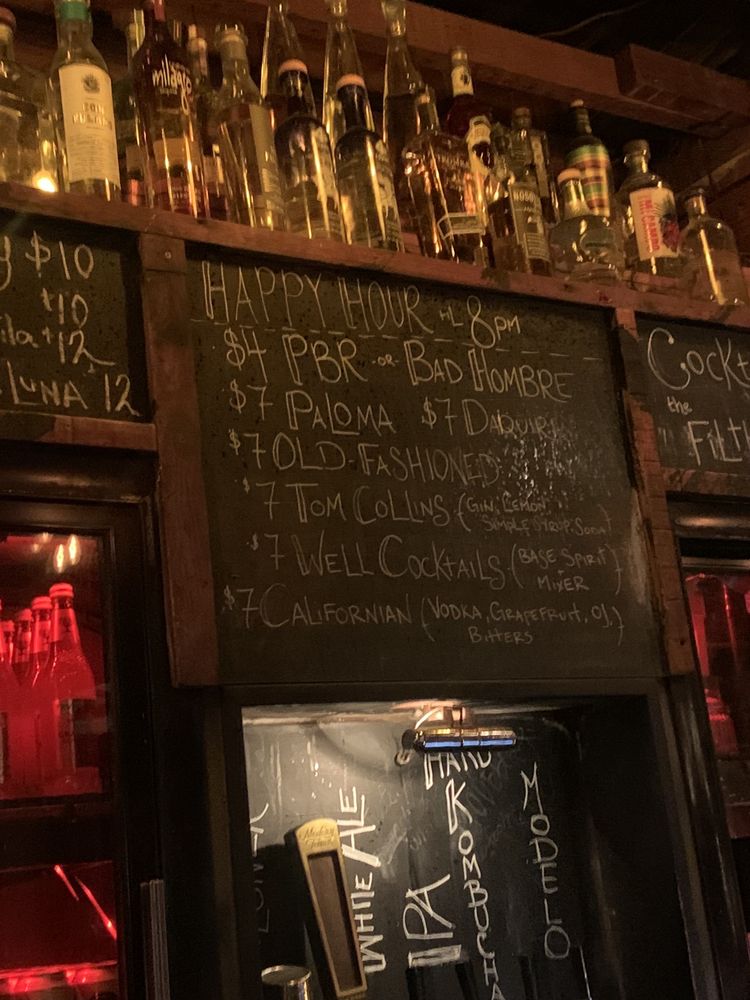 milagro
y $10
$10
ila $12
LUNA 12
HAPPY HOUR 'TIL 8PM
$4 PBR -OR- BAD HOMBRE
$7 PALOMA $7 DAQUIRI
$7 OLD-FASHIONED
$7 TOM COLLINS (GIN, LEMON,
SIMPLE SYRUP, SODA)
$7 WELL COCKTAILS (BASE SPIRIT
MIXER)
$7 CALIFORNIAN (VODKA, GRAPEFRUIT, OJ,
BITTERS)
COCKT
the
FILTH
WHITE ALE
IPA
HARD
KOMBUCHA
MODELO